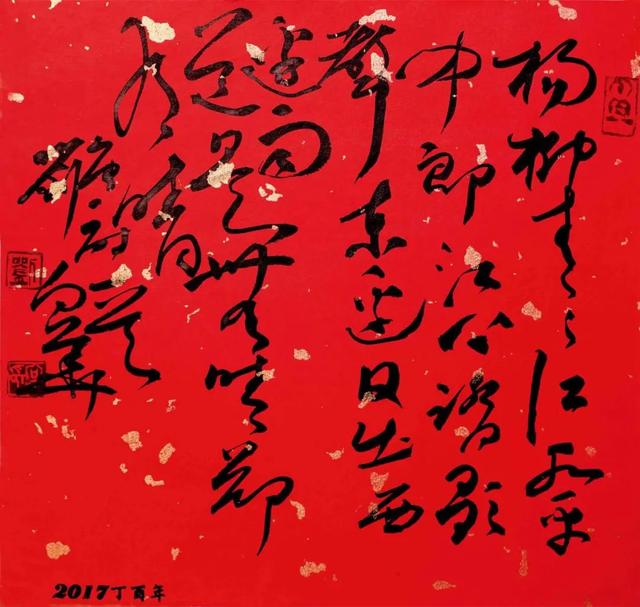 杨柳青々江水平
闻郎江上踏歌
声东边日出西
边雨
道是無晴却
有晴
2017丁酉年